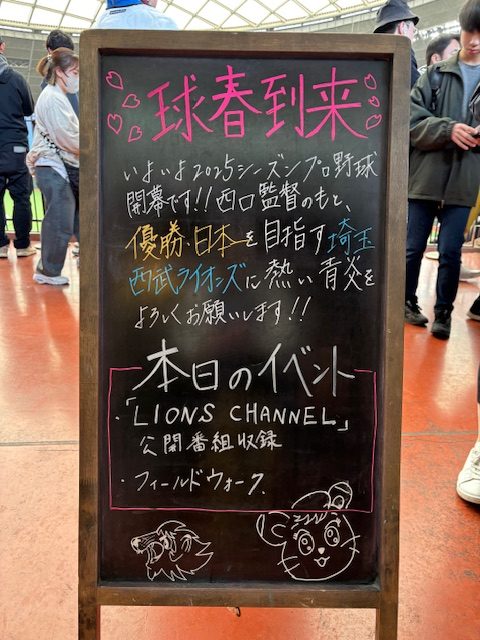 球春到来
いよいよ2025シーズンプロ野球
開幕です!!西口監督のもと、
優勝・日本一を目指す埼玉
西武ライオンズに熱い青炎を
よろしくお願いします!!
本日のイベント
・「LIONS CHANNEL」
公開番組収録
・フィールドウォーク